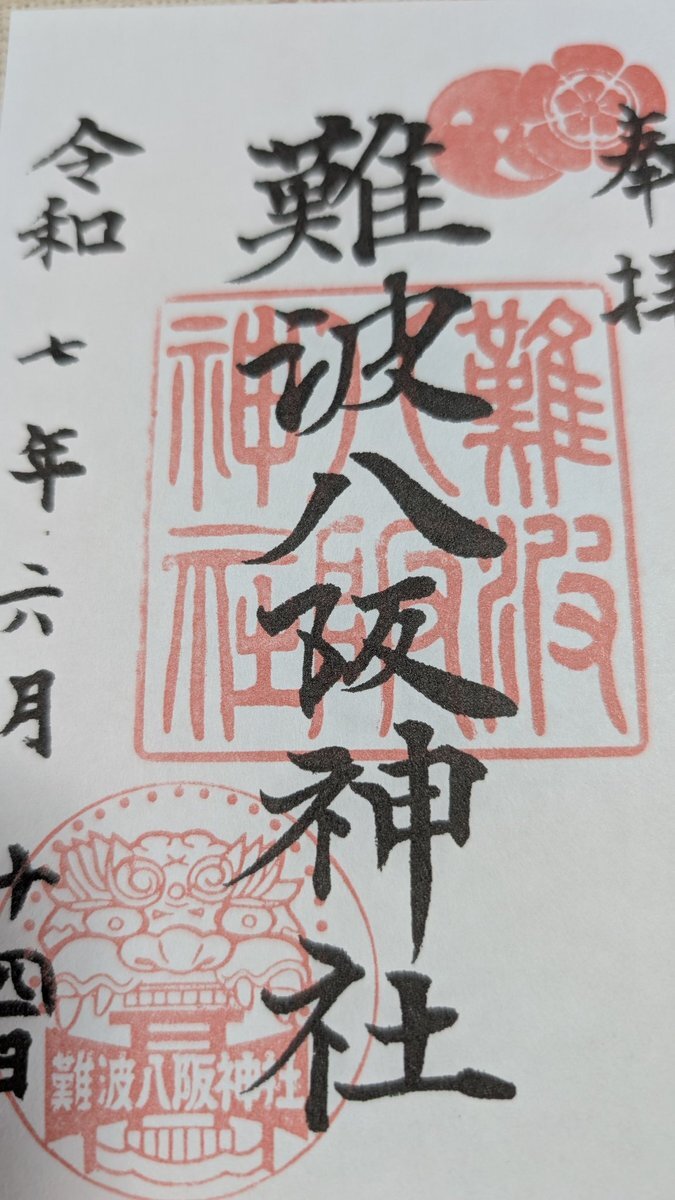 奉拝
難波八阪神社
難波八阪神社
令和七年六月十四日
難波八阪神社